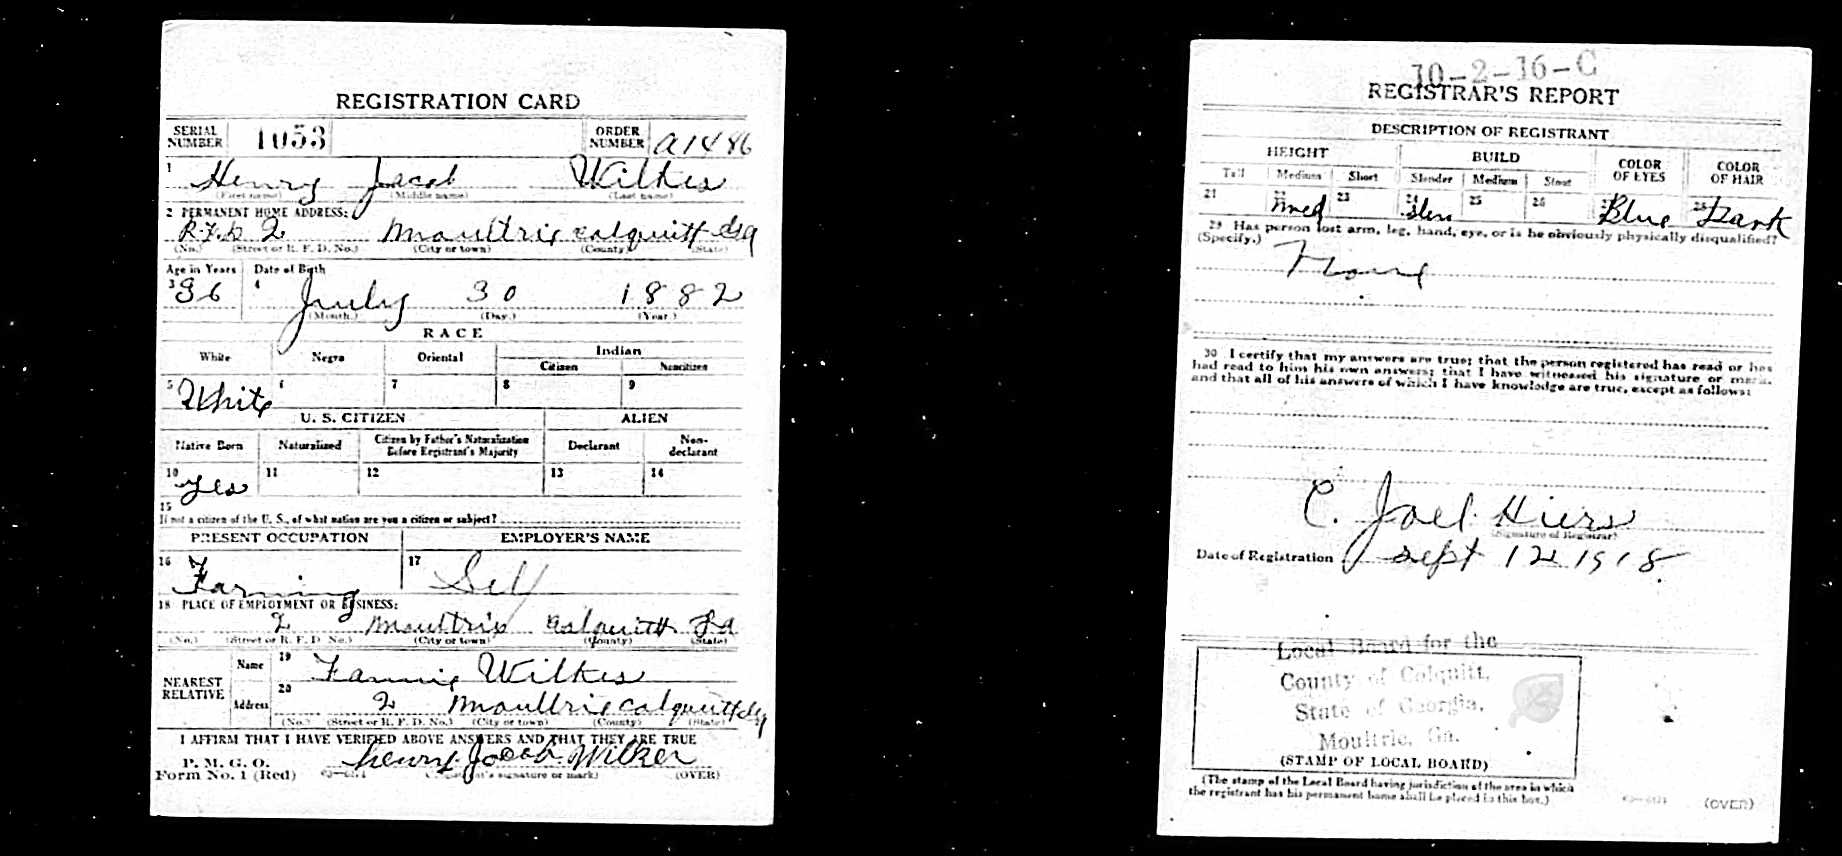 REGISTRATION CARD
SERIAL NUMBER 1053 ORDER NUMBER A1486
1 Henry Jacob Wilkes
(First name) (Middle name) (Last name)
2 PERMANENT HOME ADDRESS:
R.F.D 2 Moultrie Colquitt Ga
(No.) (Street or R. F. D. No.) (City or town) (County) (State)
Age in Years Date of Birth
3 36 4 July 30 1882
(Month.) (Day.) (Year.)
RACE
White Negro Oriental Indian
Citizen Noncitizen
5 White 6 7 8 9
U. S. CITIZEN ALIEN
Native Born Naturalized Citizen by Father's Naturalization Before Registrant's Majority Declarant Non-declarant
10 yes 11 12 13 14
15
If not a citizen of the U. S., of what nation are you a citizen or subject?
PRESENT OCCUPATION EMPLOYER'S NAME
16 Farming 17 Self
18 PLACE OF EMPLOYMENT OR BUSINESS:
2 Moultrie Colquitt Ga
(No.) (Street or R. F. D. No.) (City or town) (County) (State)
NEAREST RELATIVE Name 19 Fannie Wilkes
Address 20 2 Moultrie Colquitt Ga
(No.) (Street or R. F. D. No.) (City or town) (County) (State)
I AFFIRM THAT I HAVE VERIFIED ABOVE ANSWERS AND THAT THEY ARE TRUE
P. M. G. O.
Form No. 1 (Red) Henry Jacob Wilker
(Registrant's signature or mark) (OVER)
10-2-16-C
REGISTRAR'S REPORT
DESCRIPTION OF REGISTRANT
HEIGHT BUILD COLOR OF EYES COLOR OF HAIR
Tall Medium Short Slender Medium Stout
21 22 med 23 24 slen 25 26 27 Blue 28 Dark
29 Has person lost arm, leg, hand, eye, or is he obviously physically disqualified?
(Specify.) None
30 I certify that my answers are true; that the person registered has read or has
had read to him his own answers; that I have witnessed his signature or mark,
and that all of his answers of which I have knowledge are true, except as follows:
C. Joel Hiers
(Signature of Registrar)
Date of Registration Sept 12 1918
Local Board for the
County of Colquitt,
State of Georgia,
Moultrie, Ga.
(STAMP OF LOCAL BOARD)
(The stamp of the Local Board having jurisdiction of the area in which
the registrant has his permanent home shall be placed in this box.)
(OVER)